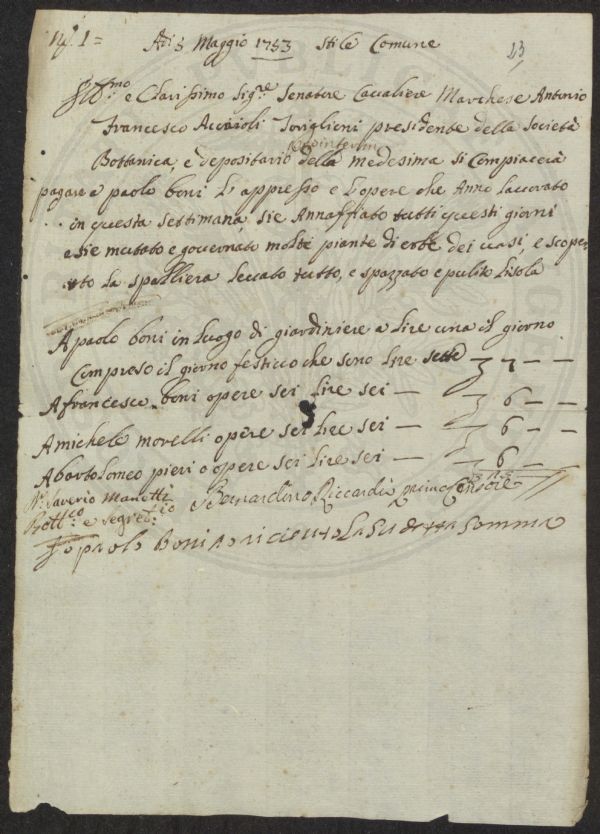 Nº 1 = Adi 5 Maggio 1753 Stile Comune
23
Ill:mo e Clarissimo Sig:re Senatore Cavaliere Marchese Antonio
Francesco Accaioli Toriglieni presidente della Società
Bottanica, e depositario della medesima si Compiacerà
pagare a paolo boni L'appresso e L'opere che Anno Laccorato
in questa settimana, sie Annaffiato tutti questi giorni
e sie mutato e governato molte piante di erbe dei vasi, e scoper
to La spalliera Leccato tutto, e spazzato e pulito Lisola
A paolo boni in Luogo di giardiniere a Lire una il giorno
Compreso il giorno festivo che sono Lire sette — 7 — —
A francesco boni opere sei Lire sei — 6 — —
A michele morelli opere sei Lire sei — 6 — —
A bartolomeo pieri opere sei Lire sei — 6 —
Saverio Manetti
Bott:co e Segret:rio Bernardino Riccardi primo Censore
Io paolo Boni o ricieuto La su detta somma